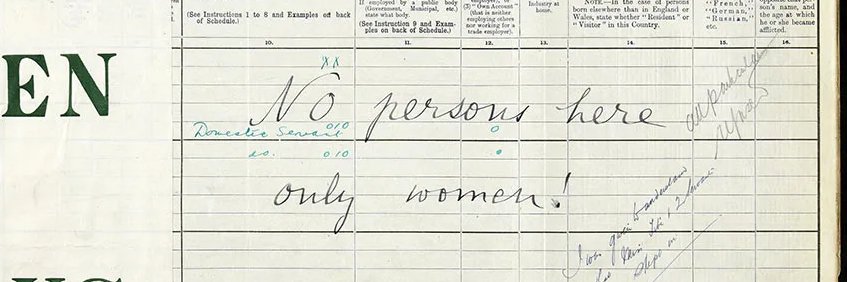 (See Instructions 1 to 8 and Examples on back
of Schedule.)
employed by a public body
(Government, Municipal, etc.)
state what body.
(See Instruction 9 and Exam-
ples on back of Schedule.)
(3) "Own Account"
(that is neither
employing others
nor working for a
trade employer).
Industry at
home.
NOTE.—In the case of persons
born elsewhere than in England or
Wales, state whether "Resident" or
"Visitor" in this Country.
"French,"
"German,"
"Russian,"
etc.
son's name, and
the age at which
he or she became
afflicted.
10.
11.
12.
13.
14.
15.
16.
EN
XX
No persons here
Domestic Servant 010 0
do. 010
only women!
I was given to understand